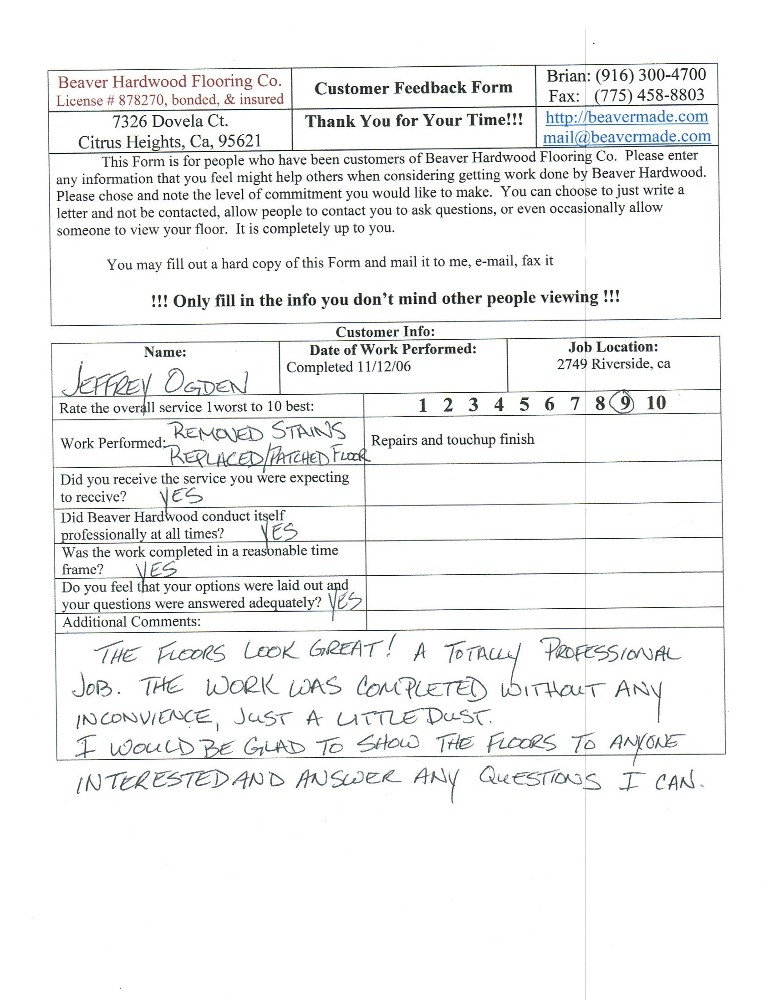 Beaver Hardwood Flooring Co.
License # 878270, bonded, & insured
Customer Feedback Form
Brian: (916) 300-4700
Fax: (775) 458-8803
7326 Dovela Ct.
Citrus Heights, Ca, 95621
Thank You for Your Time!!!
http://beavermade.com
mail@beavermade.com
This Form is for people who have been customers of Beaver Hardwood Flooring Co. Please enter
any information that you feel might help others when considering getting work done by Beaver Hardwood.
Please chose and note the level of commitment you would like to make. You can choose to just write a
letter and not be contacted, allow people to contact you to ask questions, or even occasionally allow
someone to view your floor. It is completely up to you.
You may fill out a hard copy of this Form and mail it to me, e-mail, fax it
!!! Only fill in the info you don't mind other people viewing !!!
Customer Info:
Name:
JEFFREY OGDEN
Date of Work Performed:
Completed 11/12/06
Job Location:
2749 Riverside, ca
Rate the overall service 1worst to 10 best:
1 2 3 4 5 6 7 8 9 10
Work Performed: REMOVED STAINS
REPLACED/PATCHED FLOOR
Repairs and touchup finish
Did you receive the service you were expecting
to receive? YES
Did Beaver Hardwood conduct itself
professionally at all times? YES
Was the work completed in a reasonable time
frame? YES
Do you feel that your options were laid out and
your questions were answered adequately? YES
Additional Comments:
THE FLOORS LOOK GREAT! A TOTALLY PROFESSIONAL
JOB. THE WORK WAS COMPLETED WITHOUT ANY
INCONVIENCE, JUST A LITTLE DUST.
I WOULD BE GLAD TO SHOW THE FLOORS TO ANYONE
INTERESTED AND ANSWER ANY QUESTIONS I CAN.